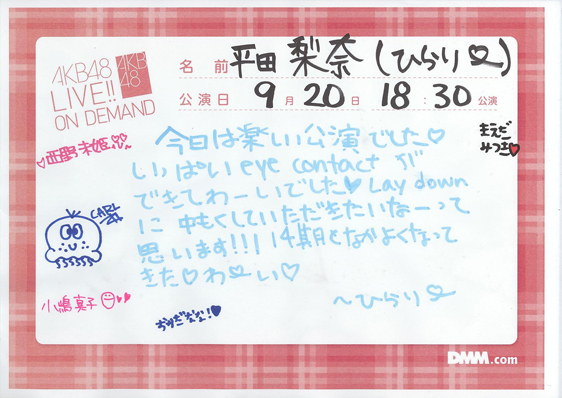 AKB48
LIVE!!
ON DEMAND
AKB
48
名 前 平田 梨奈 (ひらり)
公演日 9月 20日 18:30 公演
今日は楽しい公演でした♡
いっぱいeye contactが
できてわーいでした♡Lay down
に中もくしていただきたいなーって
思います!!!14期となかよくなって
きた♡わーい♡
~ひらり
西野未姫
まえだ
みつき♥
小嶋真子
DMM.com